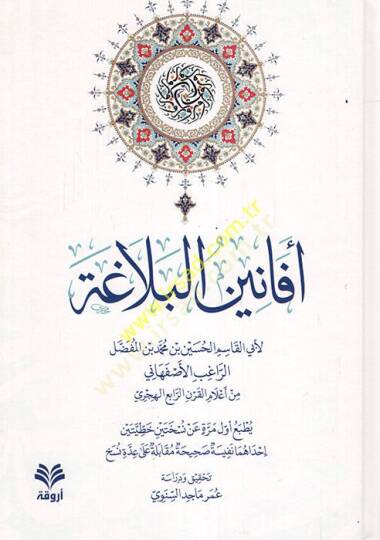 أفانين البلاغة
لأبي القاسم الحسين بن محمد بن المفضل
الراغب الأصفهاني
من أعلام القرن الرابع الهجري
يطبع أول مرة عن نسختين خطيتين
إحداهما نفيسة صحيحة مقابلة على عدة نسخ
تحقيق ودراسة
عمر ماجد السنوي
أروقة